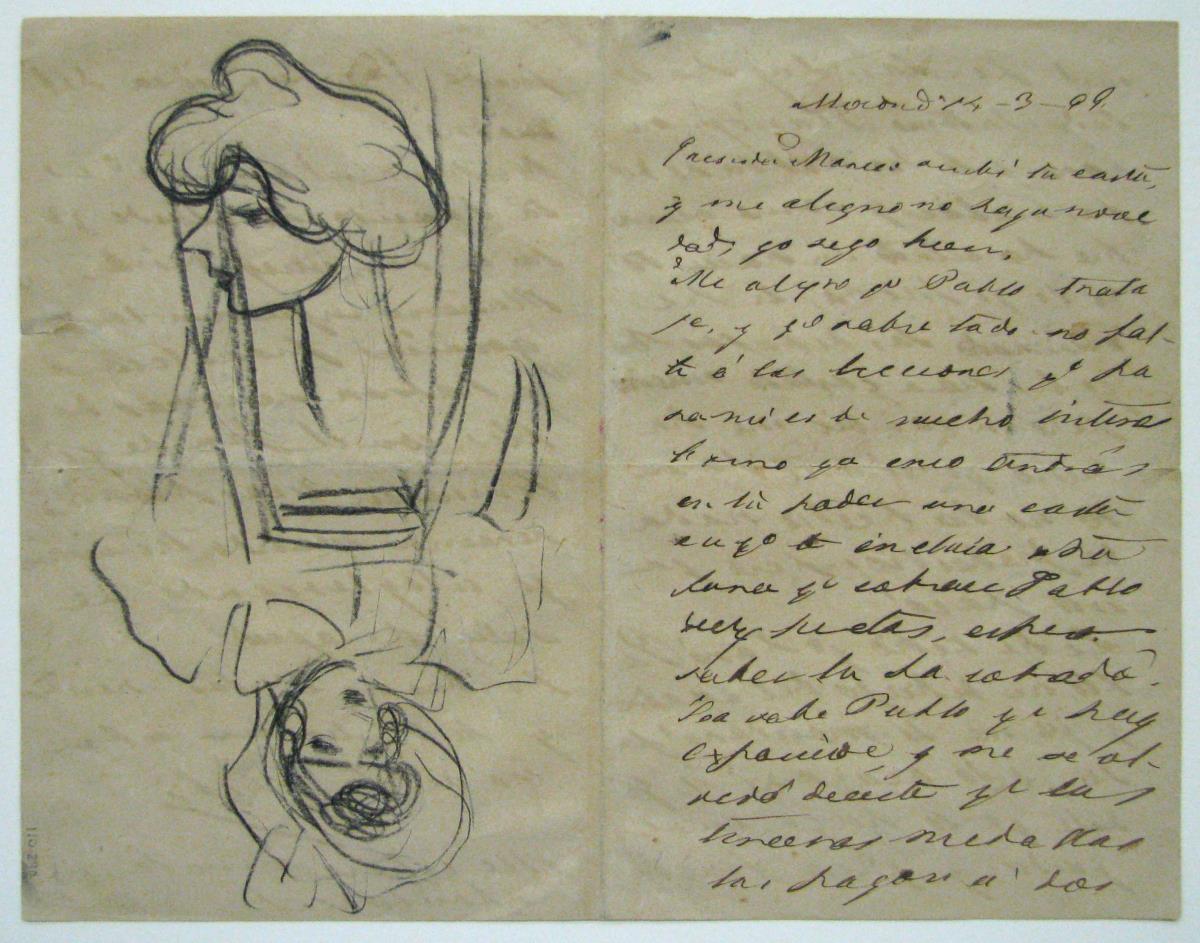 Madrid 14-3-99
Querida recibí tu carta,
y me alegro no haya nove
dad, yo sigo bien,
Me alegro qe Pablo traba
je, y qe sobre todo no fal-
te á las lecciones qe pa
ra mi es de mucho interes
ya creo tendrás
en tu poder una carta
en qe te incluia otra
para qe cobrase Pablo
pesetas, espero
saber si la ha cobrado.
Ya sabe Pablo qe hay
exposición, y me se ol-
vidó decirte qe las
terceras medallas
las pagan á dos